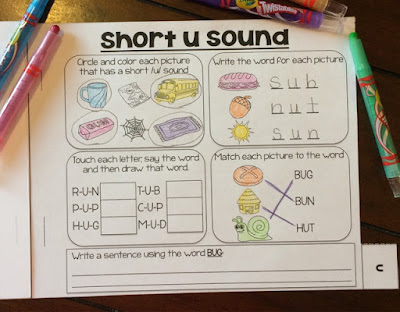 Short u sound
Circle and color each picture
that has a short /u/ sound
Write the word for each picture
sub
nut
sun
Touch each letter, say the word
and then draw that word.
R-U-N
T-U-B
P-U-P
C-U-P
H-U-G
M-U-D
Match each picture to the word
BUG
BUN
HUT
Write a sentence using the word BUG.